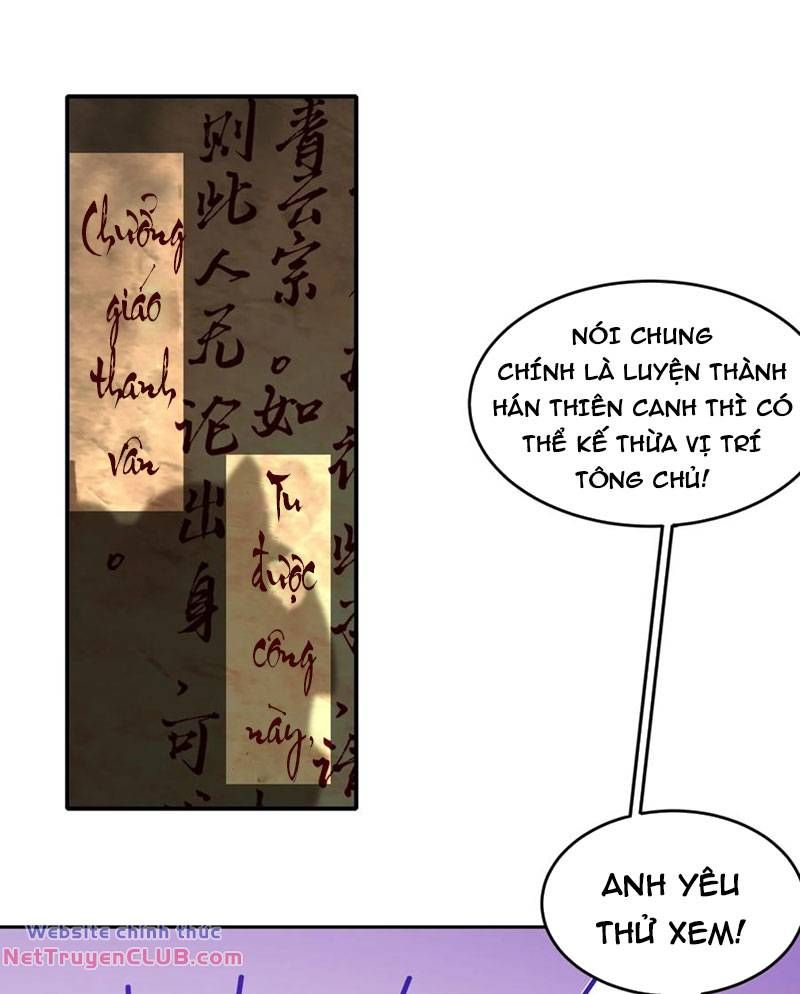 Chưởng
giáo
thanh
vân
Tu
được
công
này,
青云宗。如
则此人无论出身，可
NÓI CHUNG
CHÍNH LÀ LUYỆN THÀNH
HÁN THIÊN CANH THÌ CÓ
THỂ KẾ THỪA VỊ TRÍ
TÔNG CHỦ!
ANH YÊU
THỬ XEM!
Website chính thức
NetTruyenCLUB.com